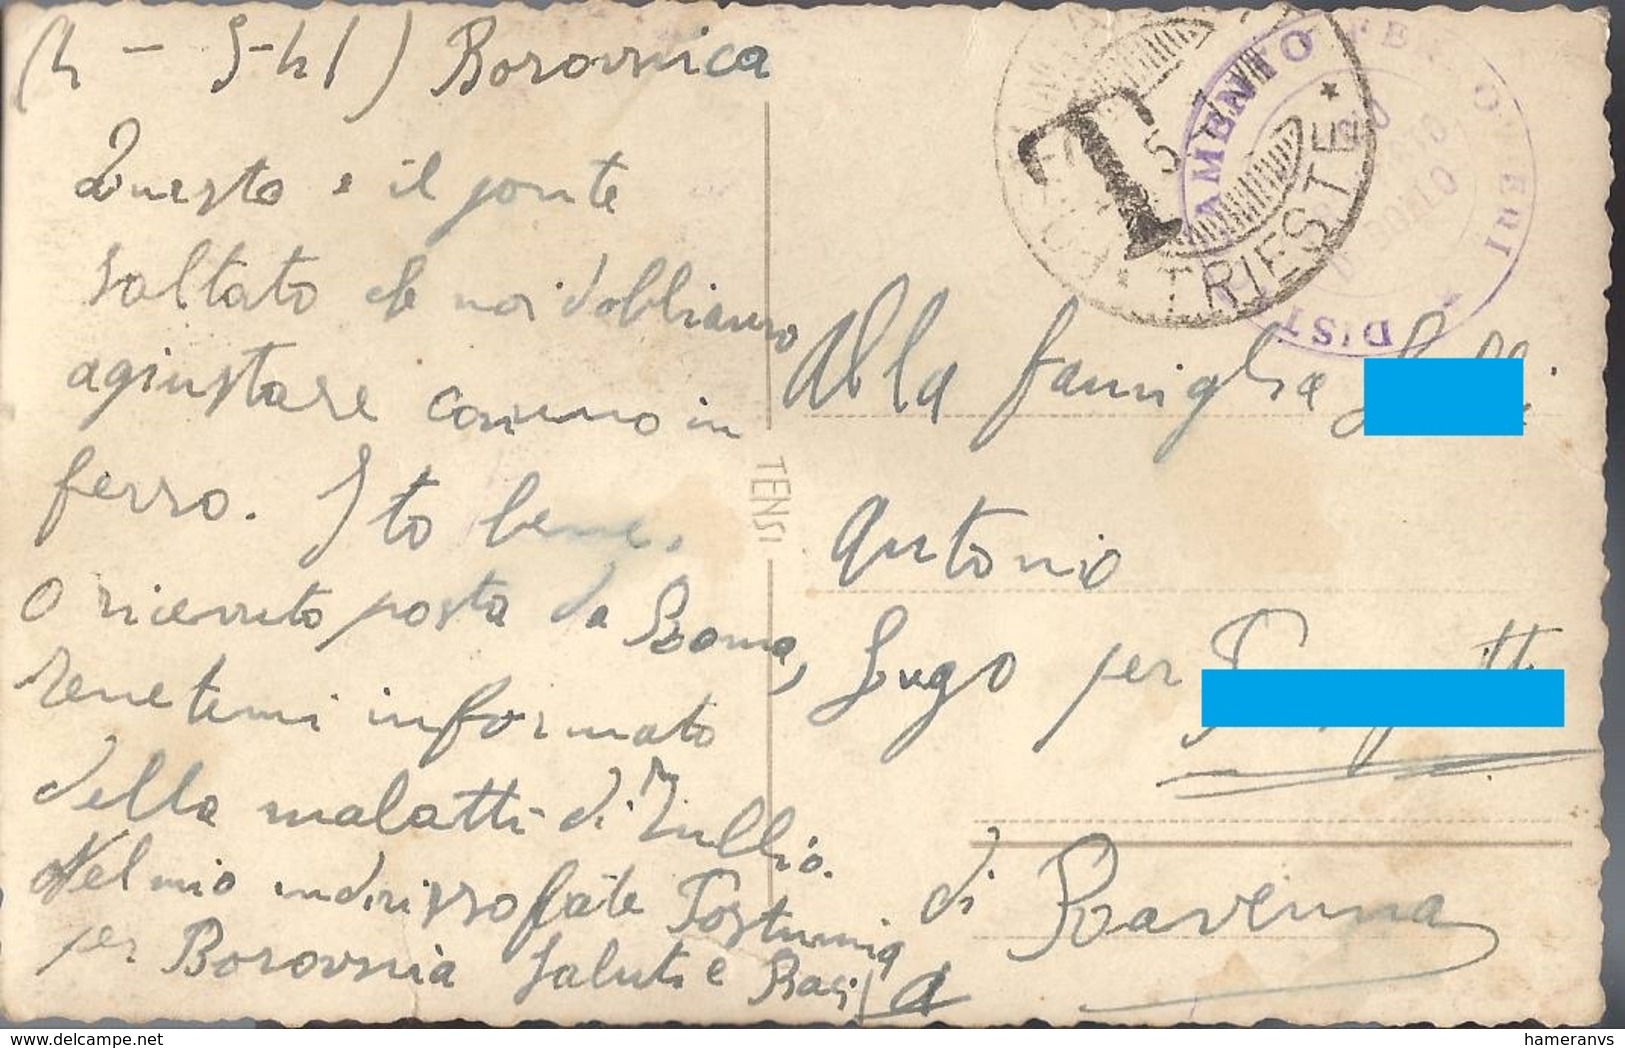 (4 - 5-41) Borovnica
Questo e il ponte
saltato che noi dobbiamo
agiustare comuno in
ferro. Sto bene.
O ricevuto posta da Roma,
tenetemi informato
della malatti di Tullio.
Nel mio indirisso fate Postumia
per Borovnia Saluti e Baci
TENSI
T
TRIESTE
AMENTO FERROVIERI
DIST
Alla famiglia
Antonio
Lugo per
di Ravenna
hameranvs
delcampe.net